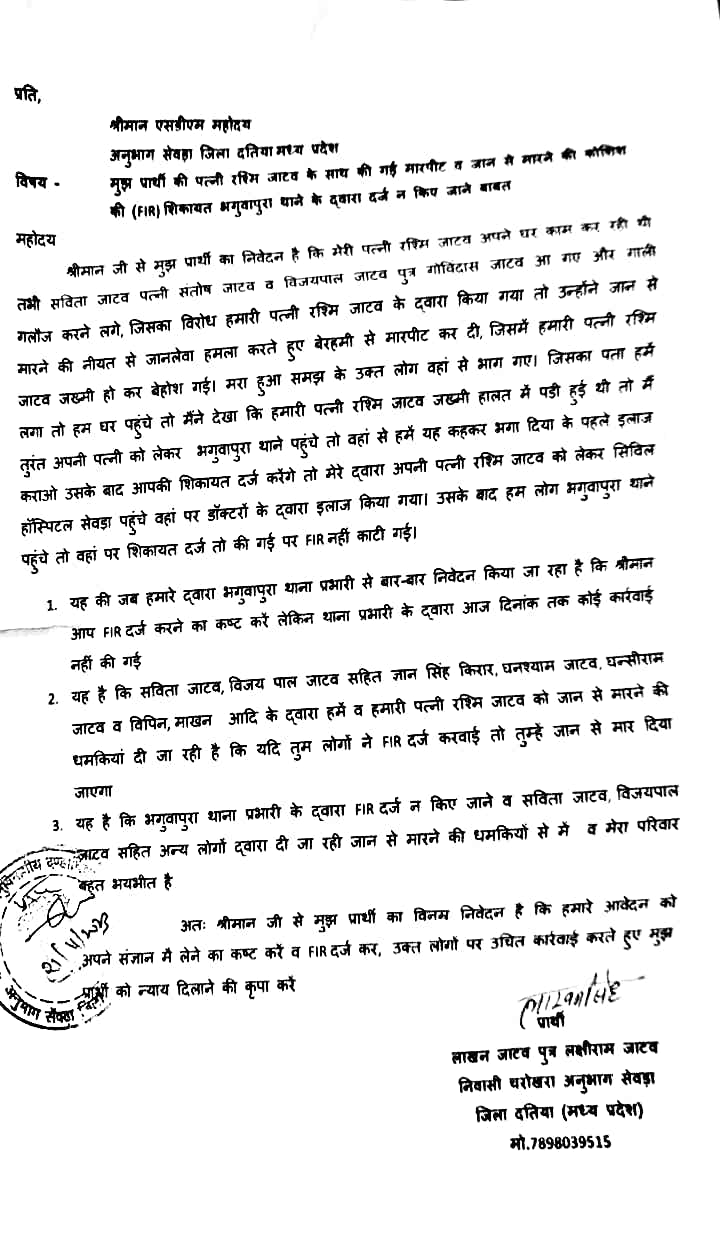 प्रति,
श्रीमान एसडीएम महोदय
अनुभाग सेवड़ा जिला दतिया मध्य प्रदेश
विषय - मुझ प्रार्थी की पत्नी रश्मि जाटव के साथ की गई मारपीट व जान से मारने की कोशिश
की (FIR) शिकायत भगुवापुरा थाने के द्वारा दर्ज न किए जाने बाबत
महोदय
श्रीमान जी से मुझ प्रार्थी का निवेदन है कि मेरी पत्नी रश्मि जाटव अपने घर काम कर रही थी
तभी सविता जाटव पत्नी संतोष जाटव व विजयपाल जाटव पुत्र गोविंदास जाटव आ गए और गाली
गलौज करने लगे, जिसका विरोध हमारी पत्नी रश्मि जाटव के द्वारा किया गया तो उन्होंने जान से
मारने की नीयत से जानलेवा हमला करते हुए बेरहमी से मारपीट कर दी, जिसमें हमारी पत्नी रश्मि
जाटव जख्मी हो कर बेहोश गई। मरा हुआ समझ के उक्त लोग वहां से भाग गए। जिसका पता हमें
लगा तो हम घर पहुंचे तो मैंने देखा कि हमारी पत्नी रश्मि जाटव जख्मी हालत में पडी हुई थी तो मैं
तुरंत अपनी पत्नी को लेकर भगुवापुरा थाने पहुंचे तो वहां से हमें यह कहकर भगा दिया के पहले इलाज
कराओ उसके बाद आपकी शिकायत दर्ज करेंगे तो मेरे द्वारा अपनी पत्नी रश्मि जाटव को लेकर सिविल
हॉस्पिटल सेवड़ा पहुंचे वहां पर डॉक्टरों के द्वारा इलाज किया गया। उसके बाद हम लोग भगुवापुरा थाने
पहुंचे तो वहां पर शिकायत दर्ज तो की गई पर FIR नहीं काटी गई।
1. यह की जब हमारे द्वारा भगुवापुरा थाना प्रभारी से बार-बार निवेदन किया जा रहा है कि श्रीमान
आप FIR दर्ज करने का कष्ट करें लेकिन थाना प्रभारी के द्वारा आज दिनांक तक कोई कार्रवाई
नहीं की गई
2. यह है कि सविता जाटव, विजय पाल जाटव सहित ज्ञान सिंह किरार, घनश्याम जाटव, घन्सीराम
जाटव व विपिन, माखन आदि के द्वारा हमें व हमारी पत्नी रश्मि जाटव को जान से मारने की
धमकियां दी जा रही है कि यदि तुम लोगों ने FIR दर्ज करवाई तो तुम्हें जान से मार दिया
जाएगा
3. यह है कि भगुवापुरा थाना प्रभारी के द्वारा FIR दर्ज न किए जाने व सविता जाटव, विजयपाल
जाटव सहित अन्य लोगों द्वारा दी जा रही जान से मारने की धमकियों से में व मेरा परिवार
बहुत भयभीत है
अतः श्रीमान जी से मुझ प्रार्थी का विनम्र निवेदन है कि हमारे आवेदन को
अपने संज्ञान मै लेने का कष्ट करें व FIR दर्ज कर, उक्त लोगों पर उचित कार्रवाई करते हुए मुझ
प्रार्थी को न्याय दिलाने की कृपा करें
21/11/2023
अनुभाग सेंवढा
प्रार्थी
लाखन जाटव पुत्र लक्षीराम जाटव
निवासी थरोखरा अनुभाग सेवड़ा
जिला दतिया (मध्य प्रदेश)
मो.7898039515